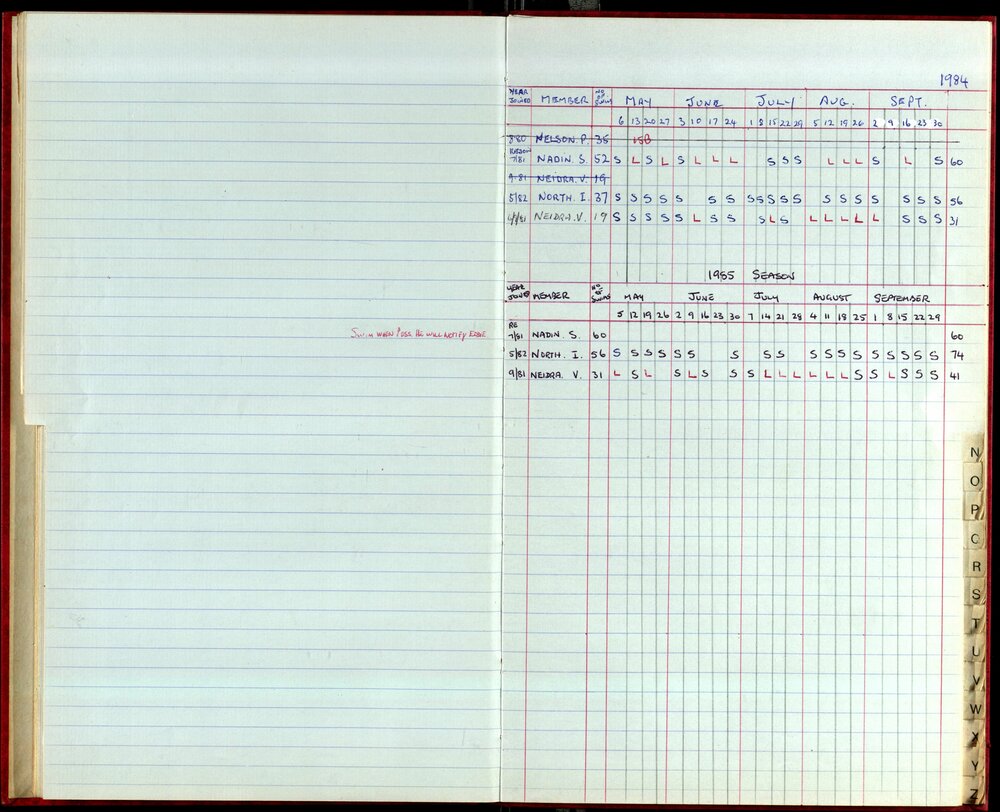 1984
YEAR JOINED MEMBER NO OF SWIMS MAY JUNE JULY AUG. SEPT.
6 13 20 27 3 10 17 24 1 8 15 22 29 5 12 19 26 2 9 16 23 30
8·80 NELSON. P. 35
7/81 NADIN. S. 52 S L S L S L L L S S S L L L S L S 60
9·81 NEIDRA. V. 19
5/82 NORTH. I. 37 S S S S S S S S S S S S S S S S S S S S 56
NEIDRA. V. 19 S S S S S L S S S L S L L L L L S S S 31
1985 SEASON
YEAR JOINED MEMBER NO OF SWIMS MAY JUNE JULY AUGUST SEPTEMBER
5 12 19 26 2 9 16 23 30 7 14 21 28 4 11 18 25 1 8 15 22 29
RE
SWIM WHEN POSS. HE WILL NOTIFY EDDIE 7/81 NADIN. S. 60 60
5/82 NORTH. I. 56 S S S S S S S S S S S S S S S S S S 74
9/81 NEIDRA. V. 31 L S L S L S S S L L L L L L S S L S S S 41
N
O
P
R
S
T
U
V
W
X
Y
Z